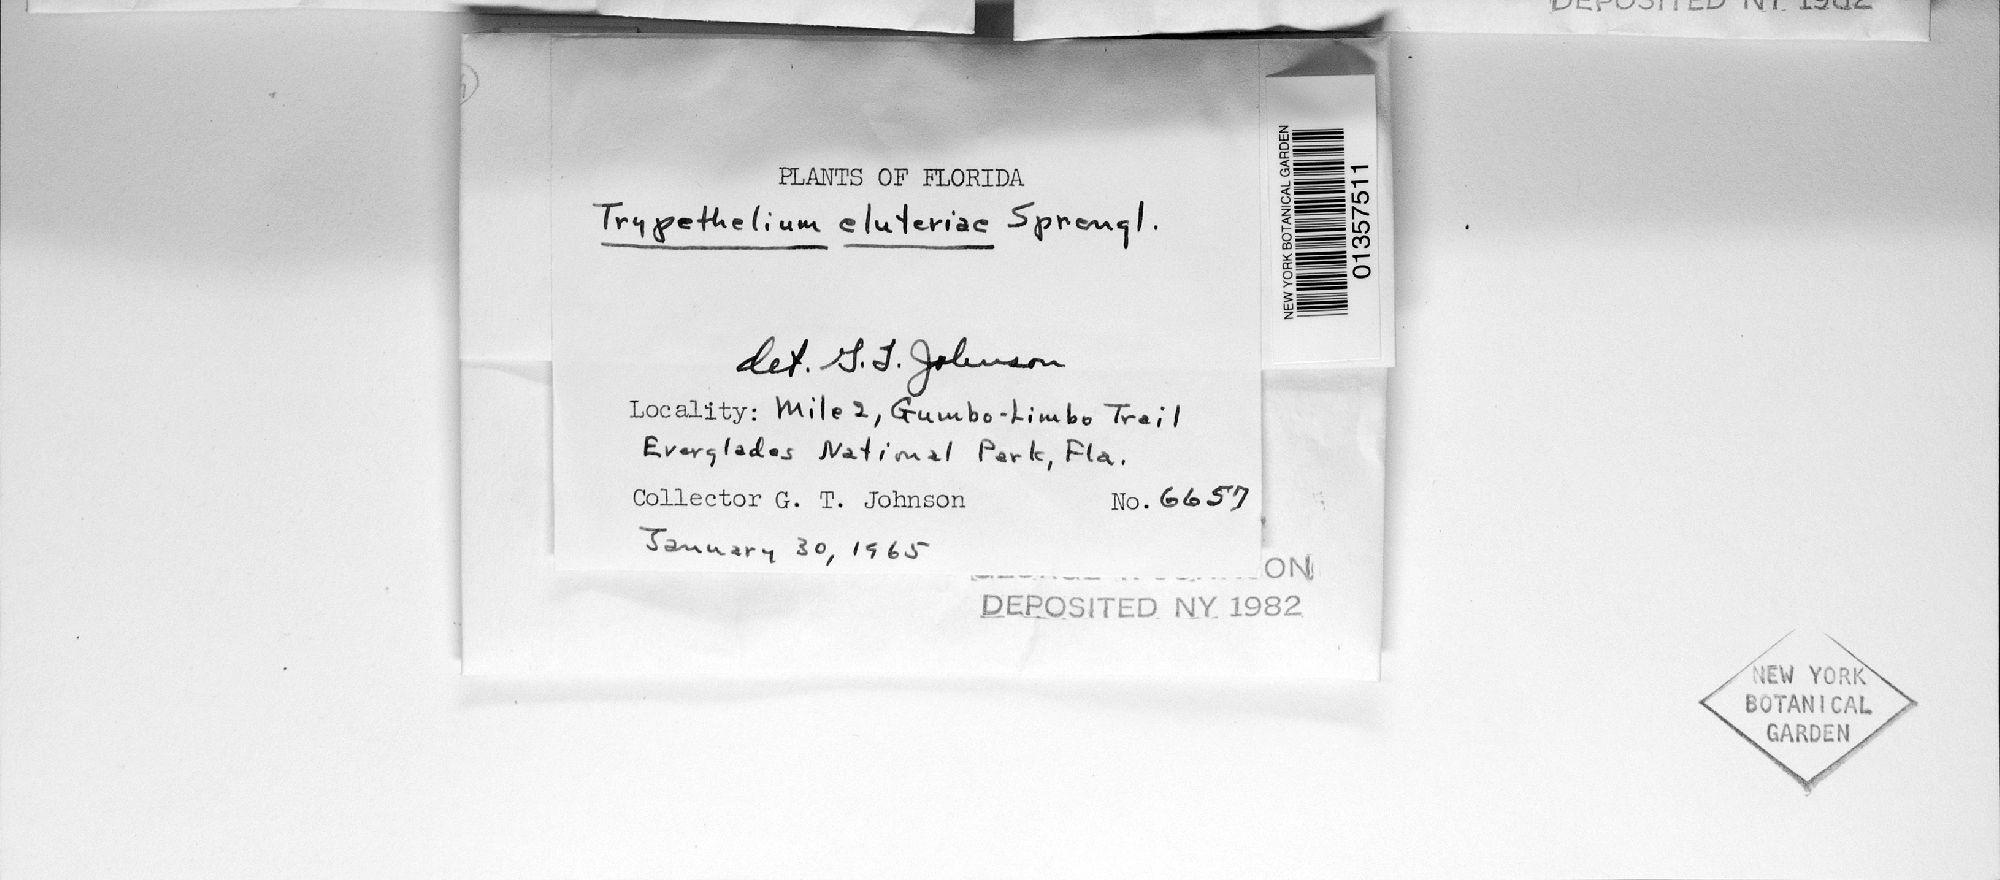 DEPOSITED NY 1982
PLANTS OF FLORIDA
Trypethelium eluteriae Sprengl.
det. G. T. Johnson
Locality: Mile 2, Gumbo-Limbo Trail
Everglades National Park, Fla.
Collector G. T. Johnson No. 6657
January 30, 1965
DEPOSITED NY 1982
NEW YORK BOTANICAL GARDEN
01357511
NEW YORK
BOTANICAL
GARDEN